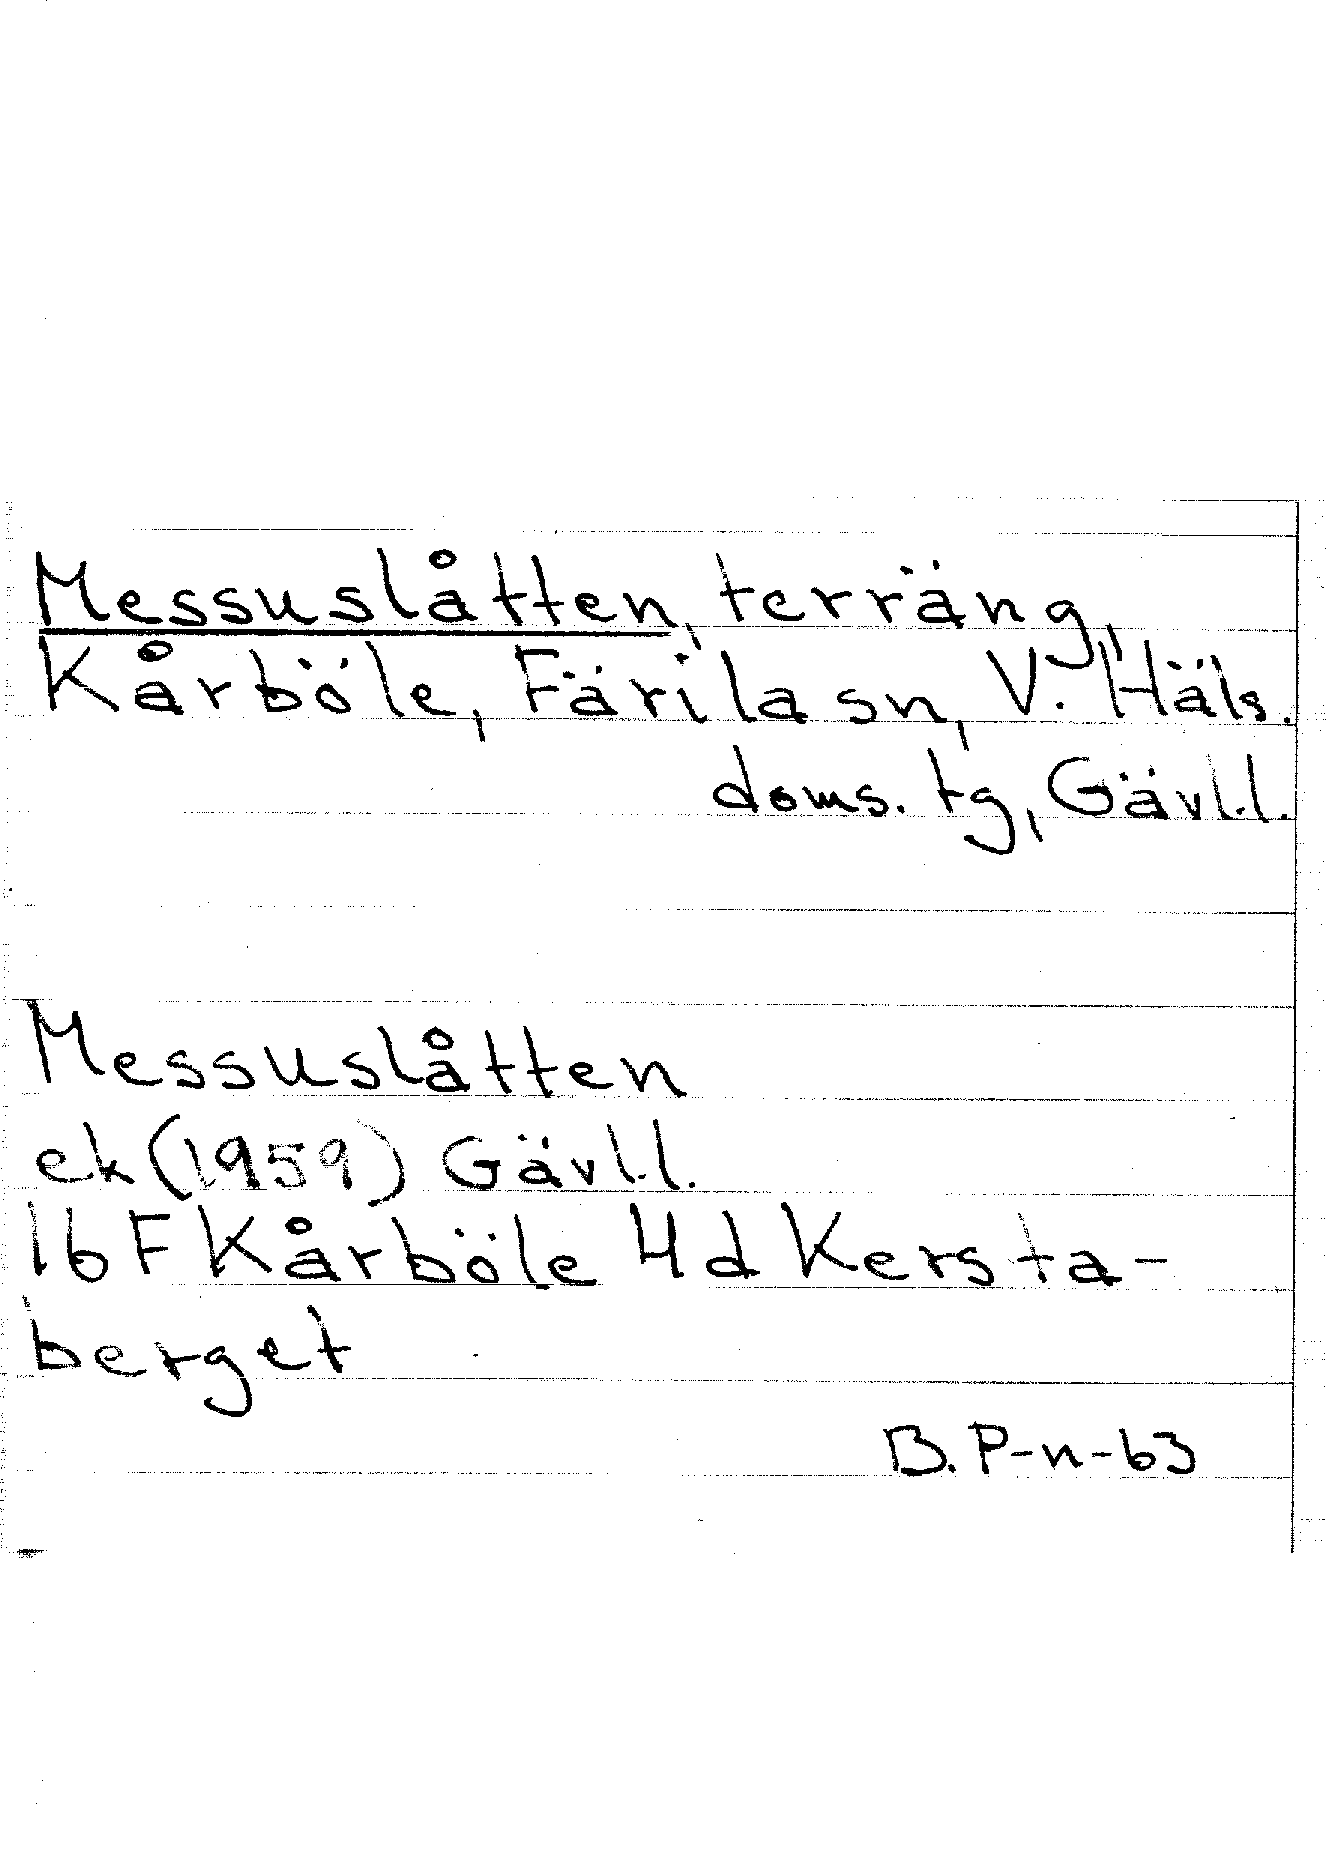 Messuslåtten, terräng,
Kårböle, Färila sn, V. Häls.
doms. tg, Gävl.l.
Messuslåtten
ek (1959) Gävl.l.
16F Kårböle 4d Kersta-
berget
B. P-n-63